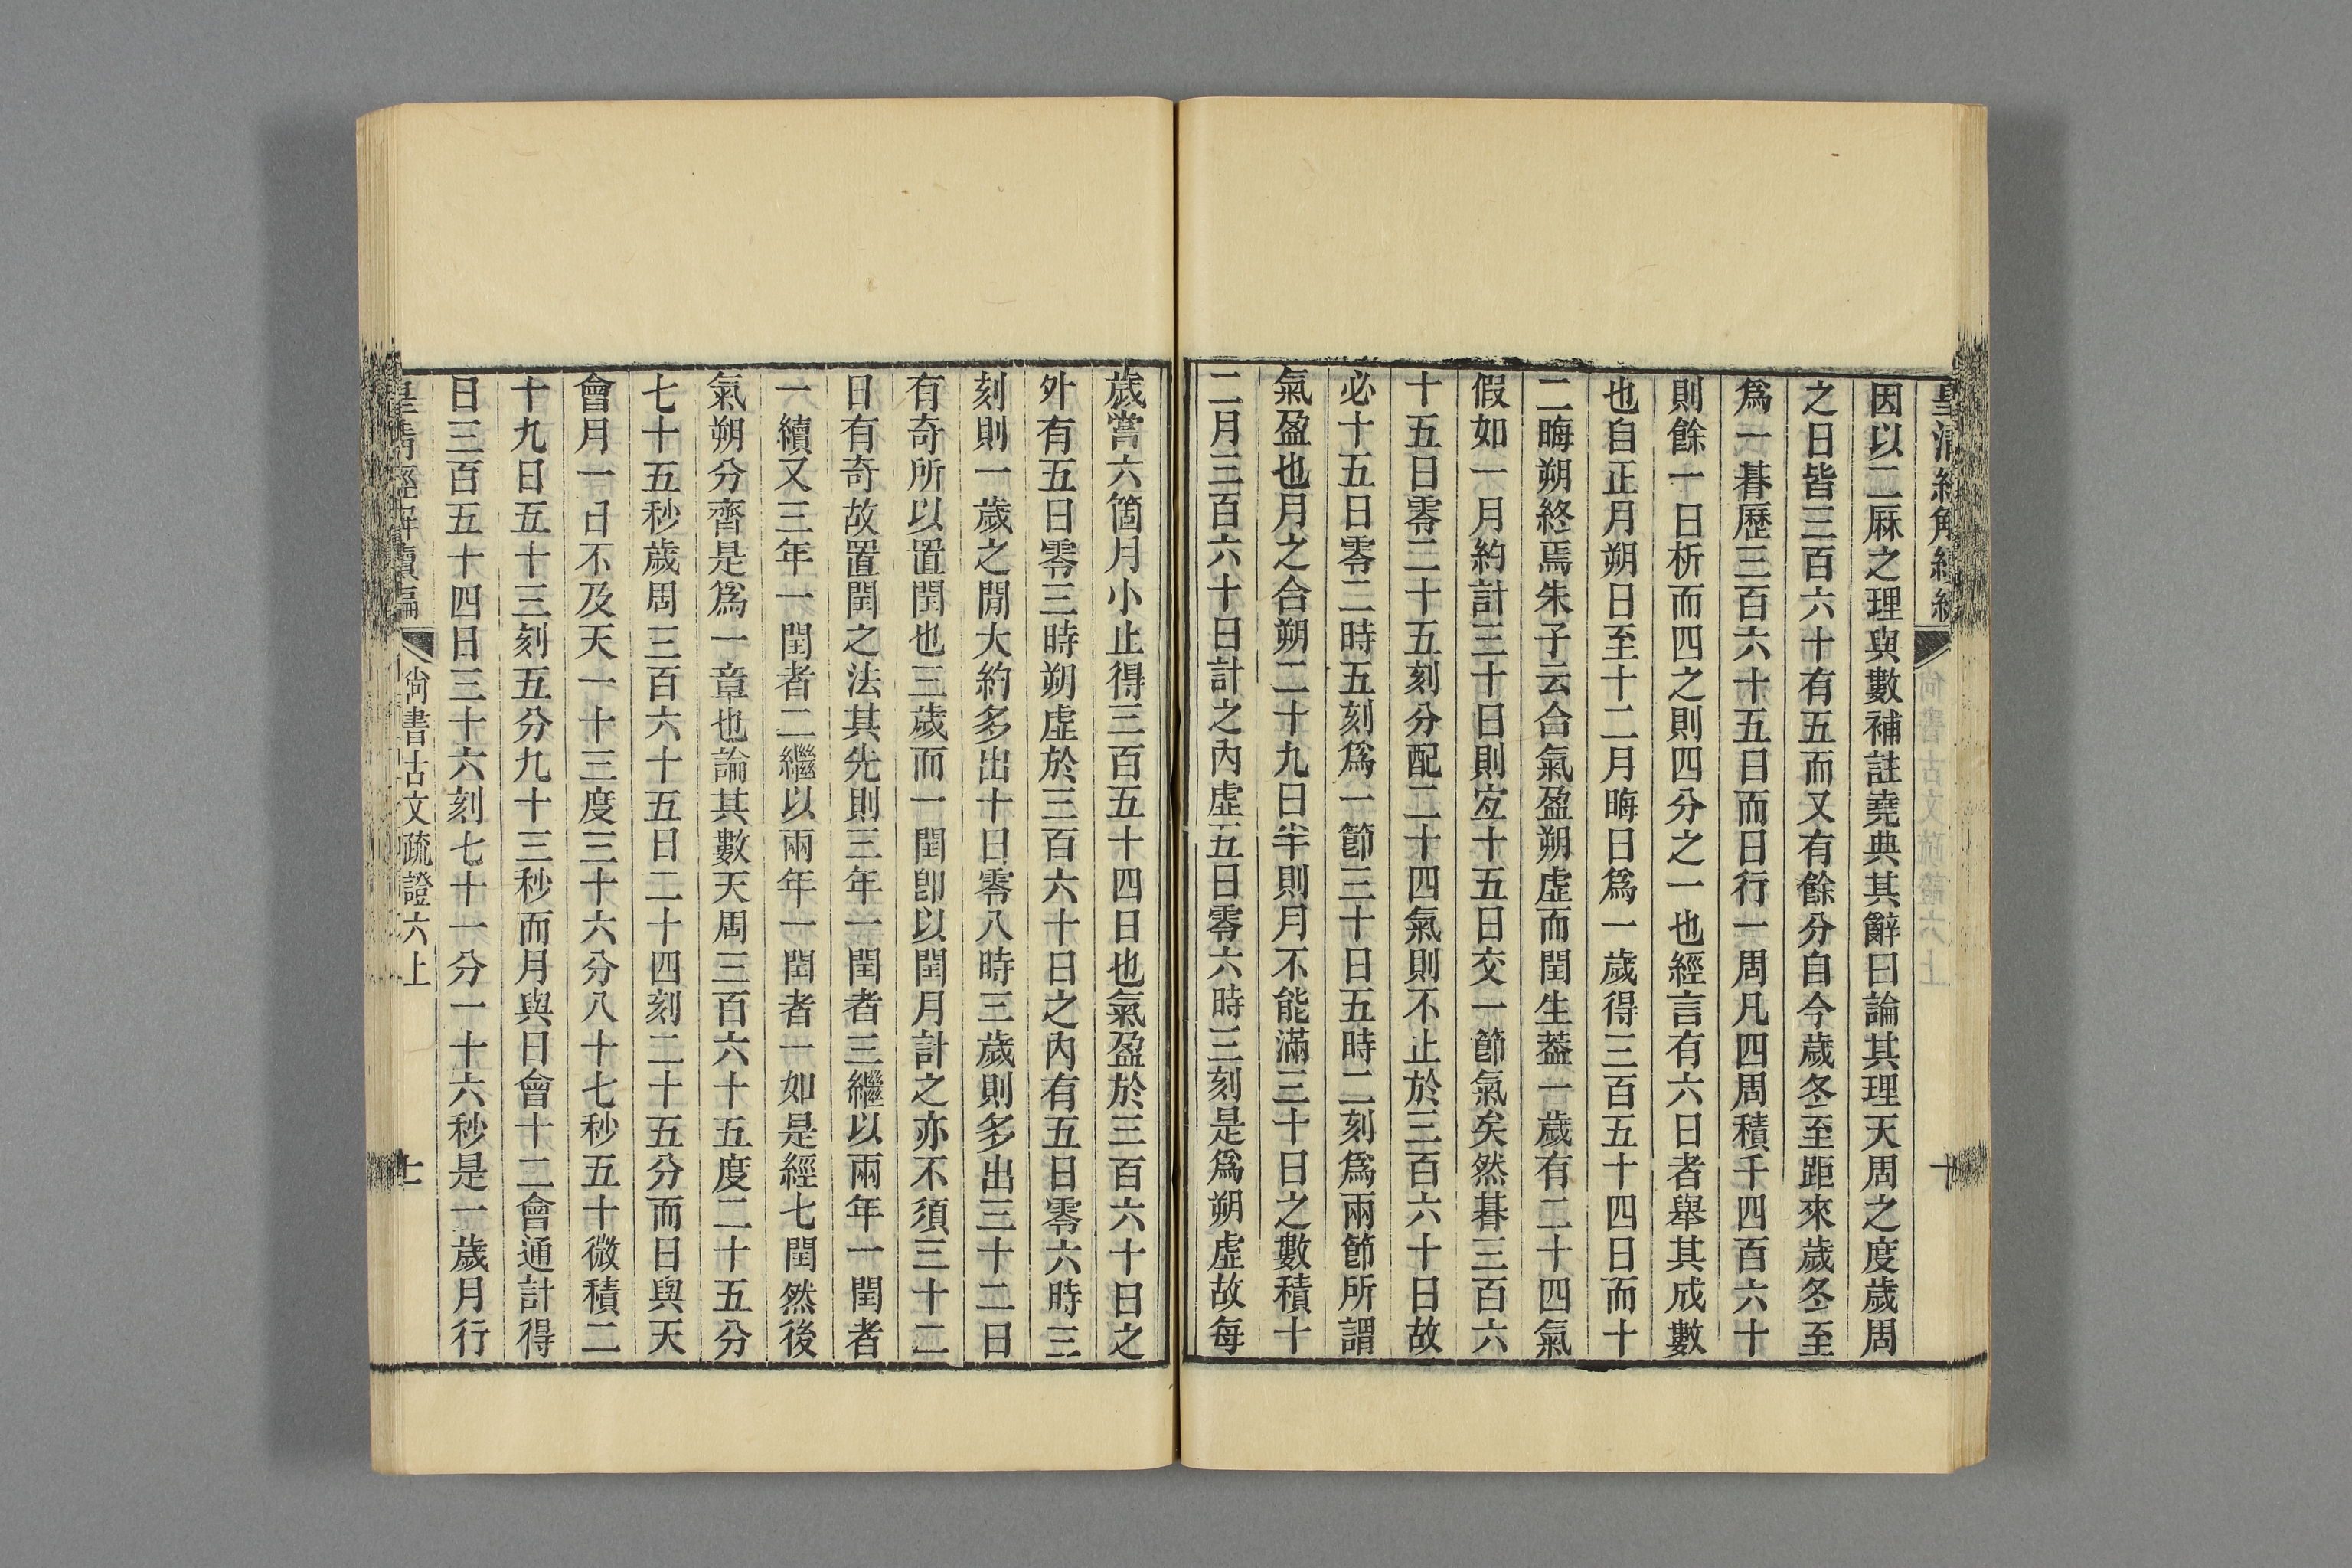 因以二厤之理與數補註堯典其辭曰論其理天周之度歲周
之日皆三百六十有五而又有餘分自今歲冬至距來歲冬至
爲一朞歷三百六十五日而日行一周凡四周積千四百六十
則餘一日析而四之則四分之一也經言有六日者舉其成數
也自正月朔日至十二月晦日爲一歲得三百五十四日而十
二晦朔終焉朱子云合氣盈朔虛而閏生葢一歲有二十四氣
假如一月約計三十日則宐十五日交一節氣矣然朞三百六
十五日零二十五刻分配二十四氣則不止於三百六十日故
必十五日零二時五刻爲一節三十日五時二刻爲兩節所謂
氣盈也月之合朔二十九日半則月不能滿三十日之數積十
二月三百六十日計之內虛五日零六時三刻是爲朔虛故每
歲嘗六箇月小止得三百五十四日也氣盈於三百六十日之
外有五日零三時朔虛於三百六十日之內有五日零六時三
刻則一歲之閒大約多出十日零八時三歲則多出三十二日
有奇所以置閏也三歲而一閏卽以閏月計之亦不須三十二
日有奇故置閏之法其先則三年一閏者三繼以兩年一閏者
一續又三年一閏者二繼以兩年一閏者一如是經七閏然後
氣朔分齊是爲一章也論其數天周三百六十五度二十五分
七十五秒歲周三百六十五日二十四刻二十五分而日與天
會月一日不及天一十三度三十六分八十七秒五十微積二
十九日五十三刻五分九十三秒而月與日會十二會通計得
日三百五十四日三十六刻七十一分一十六秒是一歲月行
皇清經解續編
尙書古文疏證六上